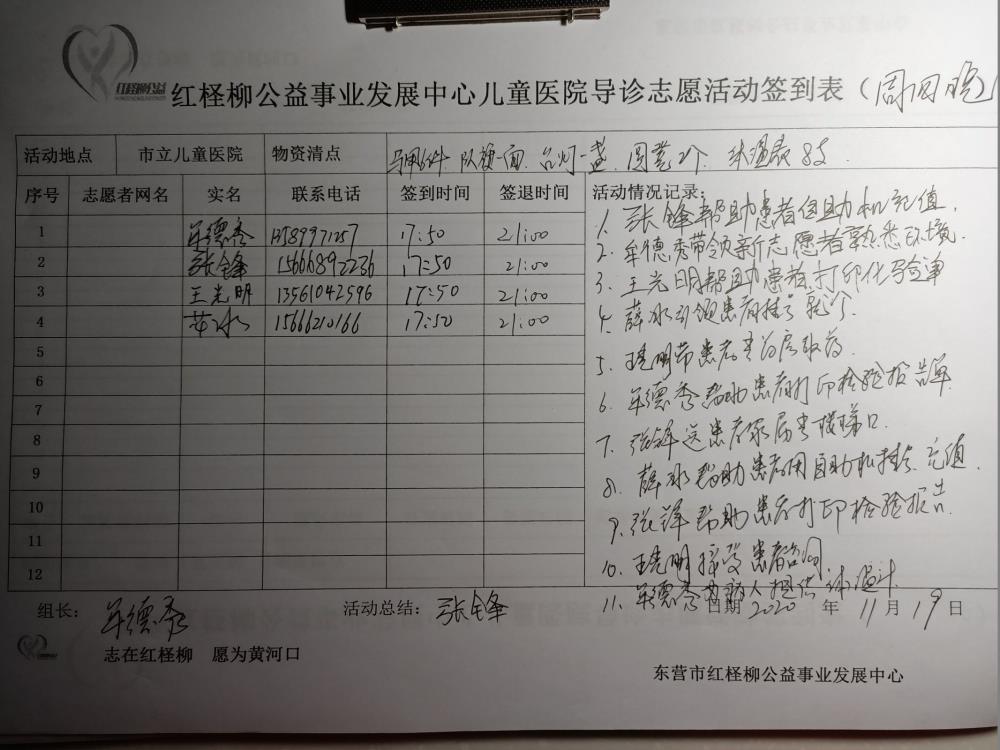 红柽柳公益事业发展中心儿童医院导诊志愿活动签到表（周四晚）
活动地点 市立儿童医院 物资清点 马甲6件 队旗一面 台灯一盏 圆凳2个 体温表8支
序号 志愿者网名 实名 联系电话 签到时间 签退时间 活动情况记录：
1 牟德秀 17:50 21:00
2 张锋 15666892236 17:50 21:00
3 王光明 13561042596 17:50 21:00
4 15666210166 17:50 21:00
5
6
7
8
9
10
11
12
1. 张锋帮助患者自助机充值.
2. 牟德秀带领新志愿者熟悉环境.
3. 王光明帮助患者打印化验单
4. 薛冰引领患者挂号就诊.
5. 王光明带患者去药房取药.
6. 牟德秀帮助患者打印检验报告单
7. 张锋送患者家属去楼梯口.
8. 薛冰帮助患者用自助机挂号充值.
9. 张锋帮助患者打印检验报告.
10. 王光明接受患者咨询
11. 牟德秀为病人提供体温计.
组长： 牟德秀 活动总结： 张锋 日期 2020 年 11 月 19 日
志在红柽柳 愿为黄河口
东营市红柽柳公益事业发展中心